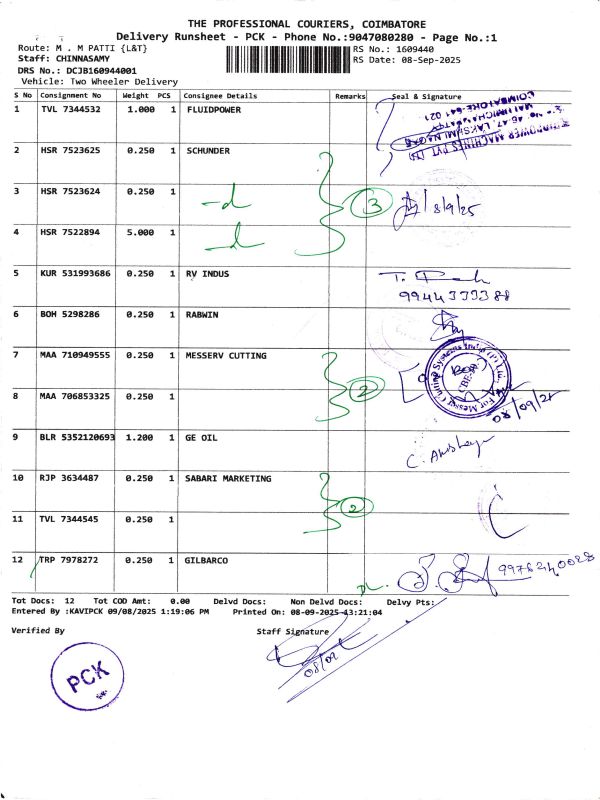 THE PROFESSIONAL COURIERS, COIMBATORE
Delivery Runsheet - PCK - Phone No.:9047080280 - Page No.:1
Route: M . M PATTI {L&T} RS No.: 1609440
Staff: CHINNASAMY RS Date: 08-Sep-2025
DRS No.: DCJB160944001
Vehicle: Two Wheeler Delivery
S No Consignment No Weight PCS Consignee Details Remarks Seal & Signature
1 TVL 7344532 1.000 1 FLUIDPOWER
2 HSR 7523625 0.250 1 SCHUNDER
3 HSR 7523624 0.250 1 -d 3 8/9/25
4 HSR 7522894 5.000 1 -d
5 KUR 531993686 0.250 1 RV INDUS
9944333388
6 BOH 5298286 0.250 1 RABWIN
7 MAA 710949555 0.250 1 MESSERV CUTTING
8 MAA 706853325 0.250 1 2
9 BLR 5352120693 1.200 1 GE OIL
10 RJP 3634487 0.250 1 SABARI MARKETING
2
11 TVL 7344545 0.250 1
12 TRP 7978272 0.250 1 GILBARCO
Tot Docs: 12 Tot COD Amt: 0.00 Delvd Docs: Non Delvd Docs: Delvy Pts:
Entered By :KAVIPCK 09/08/2025 1:19:06 PM Printed On: 08-09-2025 13:21:04
Verified By Staff Signature
08/09
PCK